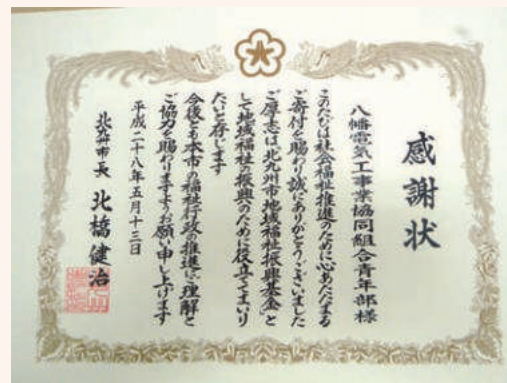 感謝状
八幡電気工事業協同組合青年部様
このたびは社会福祉推進のために心あたたまる
ご寄付を賜り誠にありがとうございました
ご厚志は、北九州市地域福祉振興基金と
して地域福祉の振興のために役立ててまいり
たいと存じます
今後とも本市の福祉行政の推進にご理解と
ご協力を賜りますようお願い申し上げます
平成二十八年五月十三日
北九州市長 北橋健治